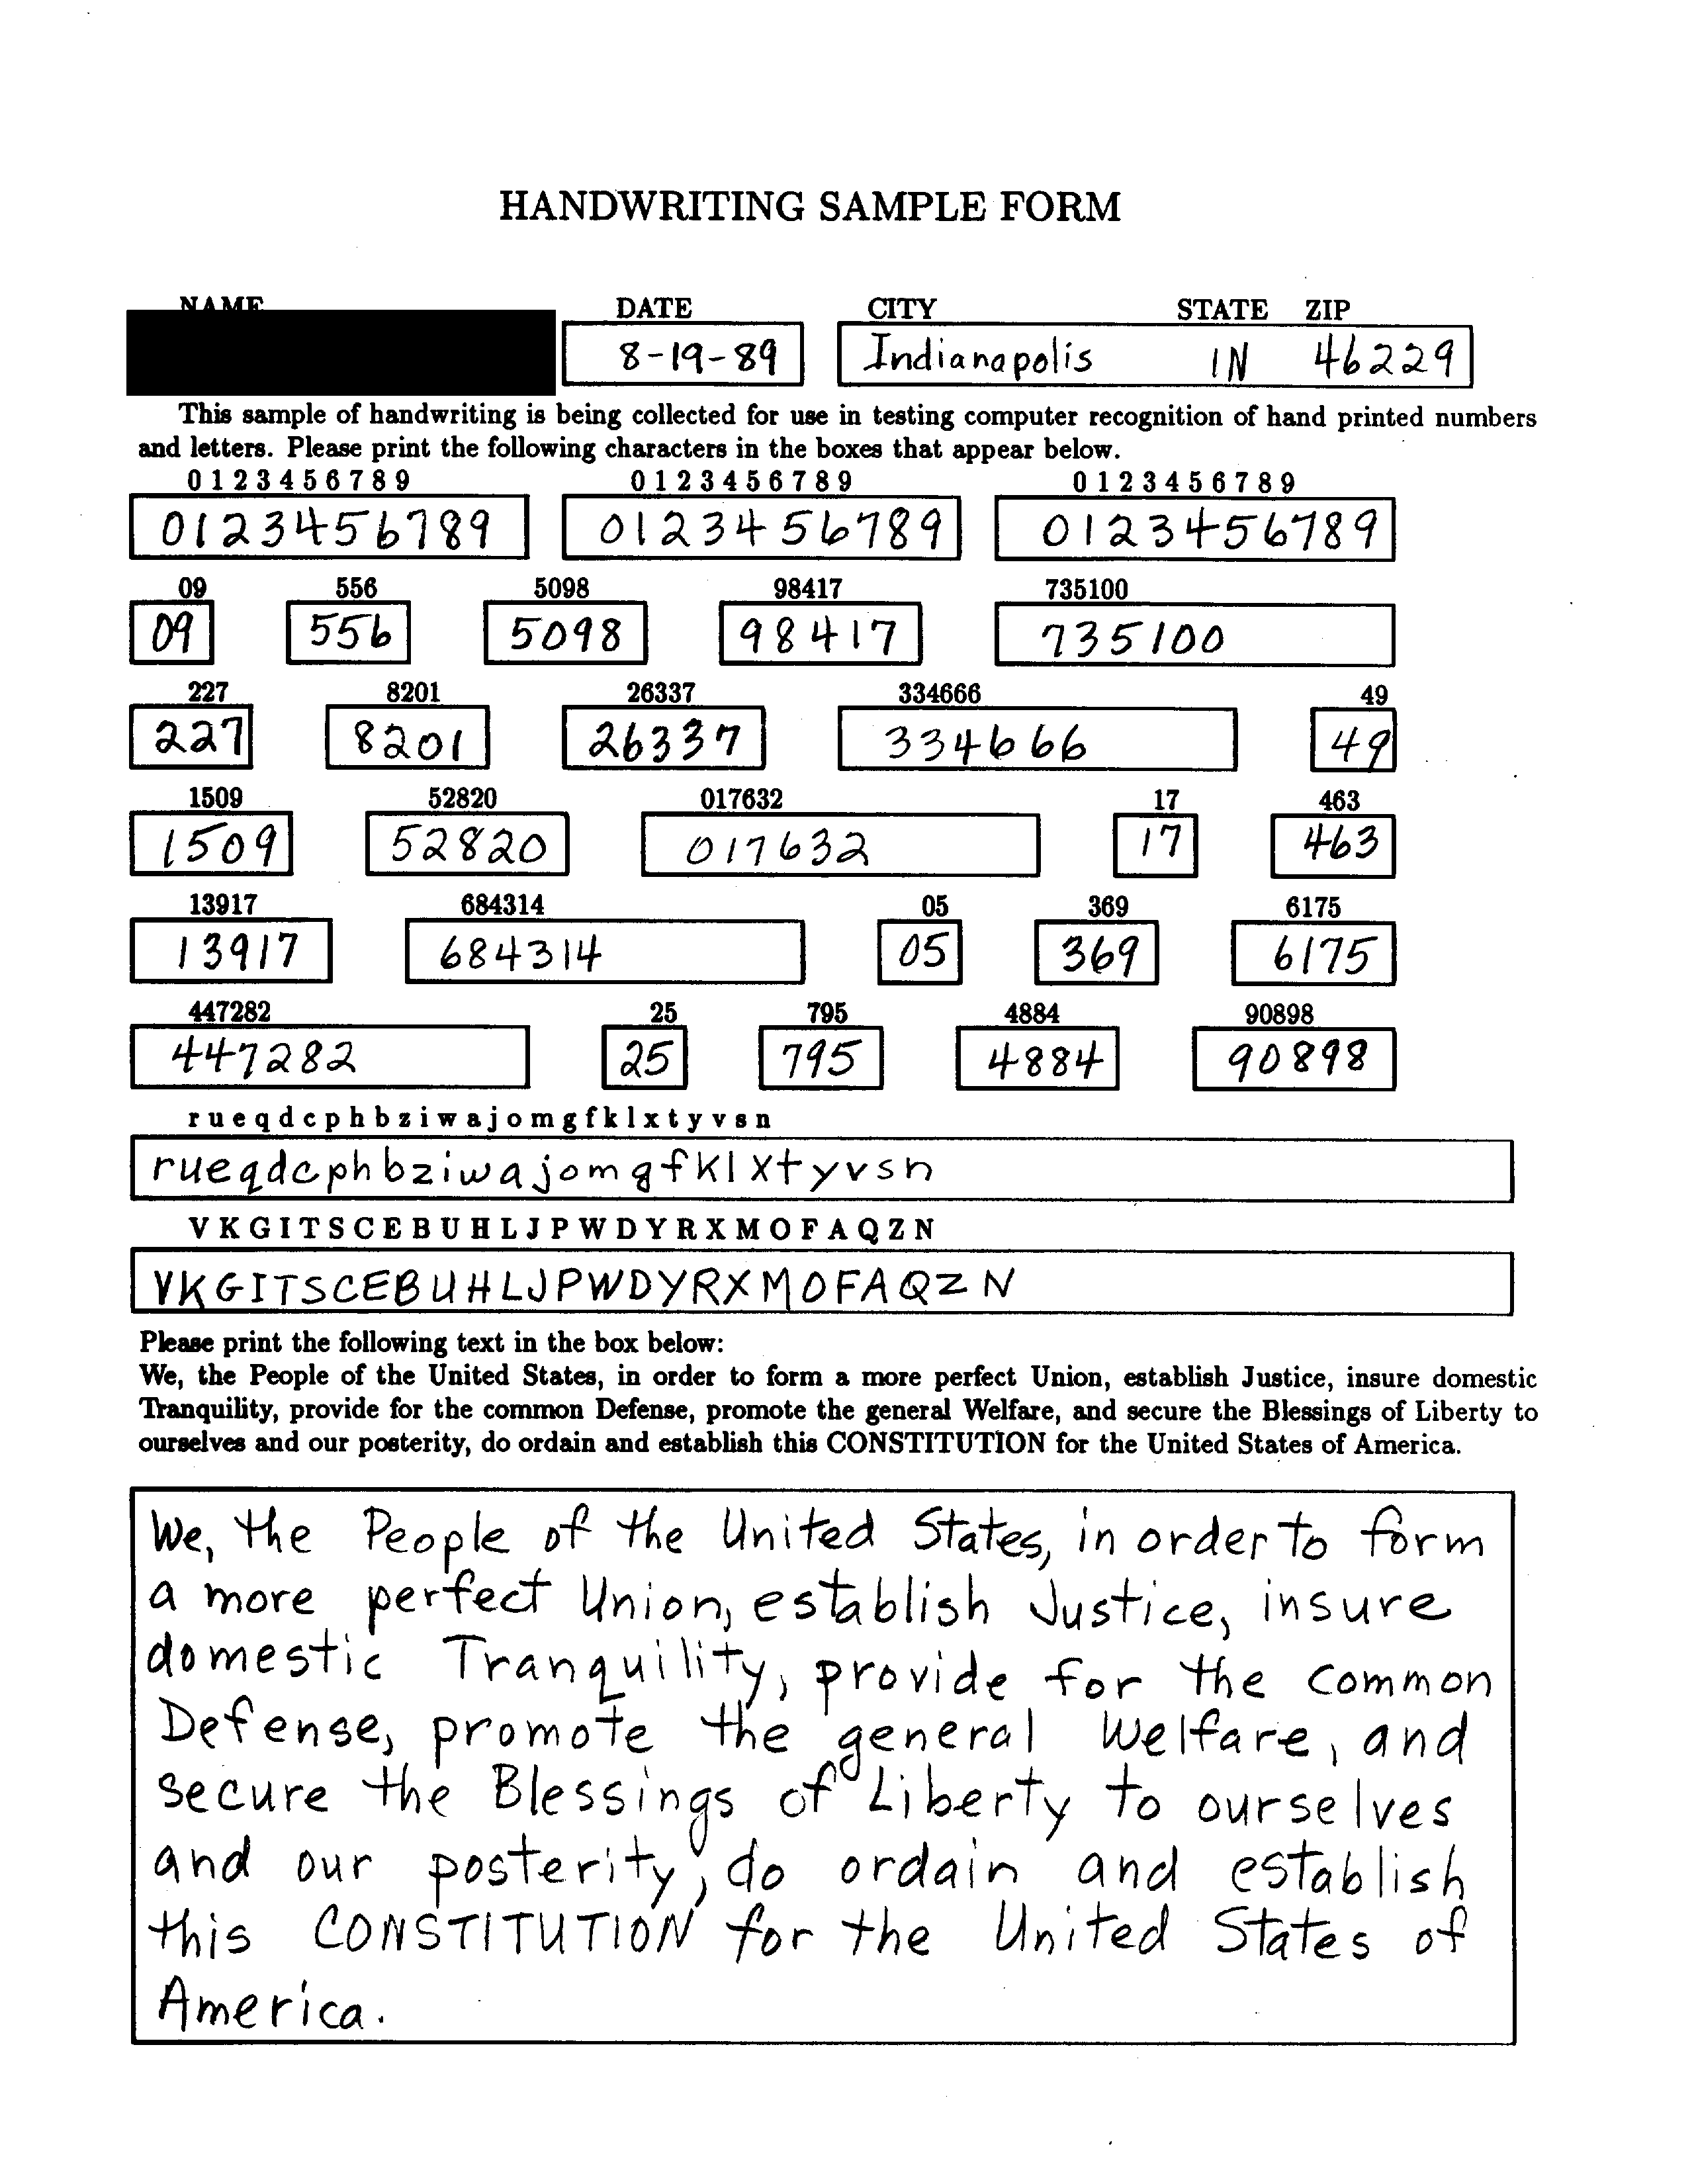 HANDWRITING SAMPLE FORM
NAME DATE CITY STATE ZIP
8-19-89 Indianapolis IN 46229
This sample of handwriting is being collected for use in testing computer recognition of hand printed numbers
and letters. Please print the following characters in the boxes that appear below.
0 1 2 3 4 5 6 7 8 9 0 1 2 3 4 5 6 7 8 9 0 1 2 3 4 5 6 7 8 9
0123456789 0123456789 0123456789
09 556 5098 98417 735100
09 556 5098 98417 735100
227 8201 26337 334666 49
227 8201 26337 334666 49
1509 52820 017632 17 463
1509 52820 017632 17 463
13917 684314 05 369 6175
13917 684314 05 369 6175
447282 25 795 4884 90898
447282 25 795 4884 90898
r u e q d c p h b z i w a j o m g f k l x t y v s n
rueqdcphbziwajomgfklxtyvsn
V K G I T S C E B U H L J P W D Y R X M O F A Q Z N
VKGITSCEBUHLJPWDYRXMOFAQZN
Please print the following text in the box below:
We, the People of the United States, in order to form a more perfect Union, establish Justice, insure domestic
Tranquility, provide for the common Defense, promote the general Welfare, and secure the Blessings of Liberty to
ourselves and our posterity, do ordain and establish this CONSTITUTION for the United States of America.
We, the People of the United States, in order to form
a more perfect Union, establish Justice, insure
domestic Tranquility, provide for the common
Defense, promote the general Welfare, and
secure the Blessings of Liberty to ourselves
and our posterity, do ordain and establish
this CONSTITUTION for the United States of
America.